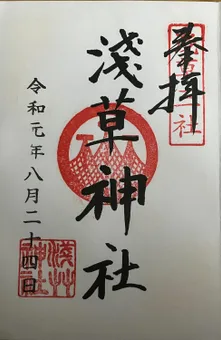 奉拝
淺草神社
令和元年八月二十四日
淺草
神社